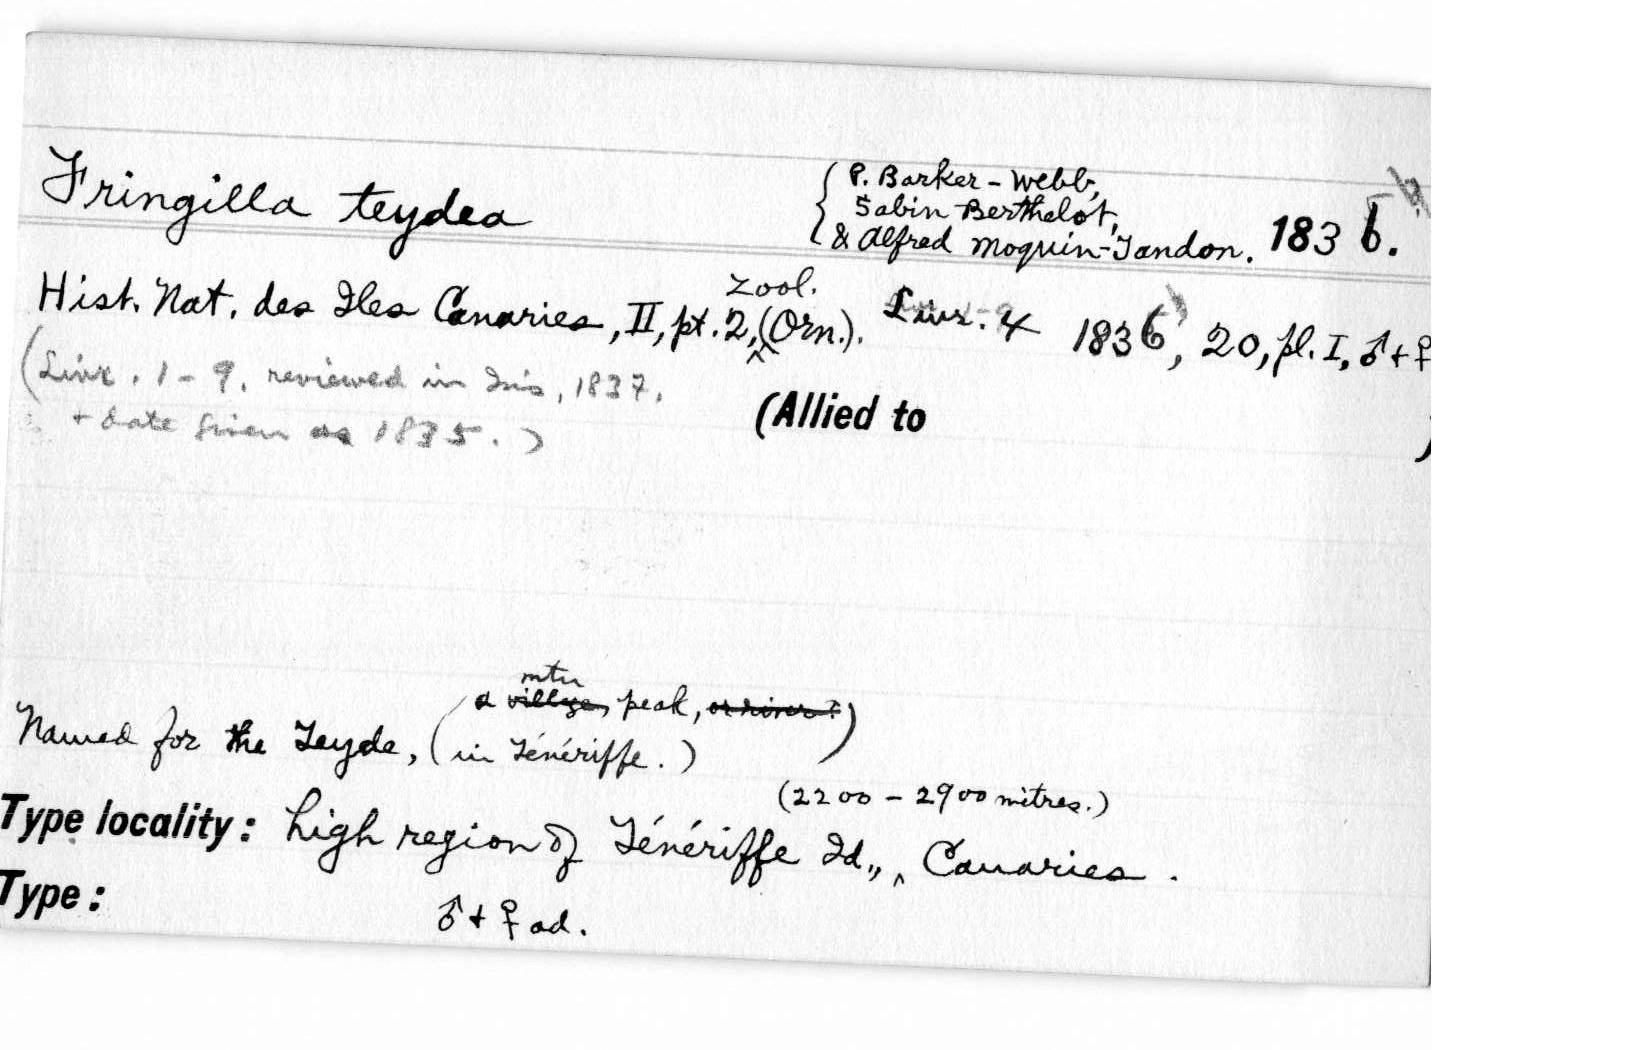 Fringilla teydea
{ P. Barker-Webb,
Sabin Berthelot,
& Alfred Moquin-Tandon. 1836.
Hist. Nat. des Iles Canaries, II, pt. 2, ^ Zool. (Orn.). Livr. 4 1836, 20, pl. I, ♂ + ♀
(Livr. 1-9, reviewed in Isis, 1837,
+ date given as 1835.)
(Allied to )
mtn
a village, peak, or river?)
Named for the Teyde, (in Ténériffe.)
(2200 - 2900 mètres.)
Type locality: high region of Ténériffe Id., ^ Canaries.
Type: ♂ + ♀ ad.